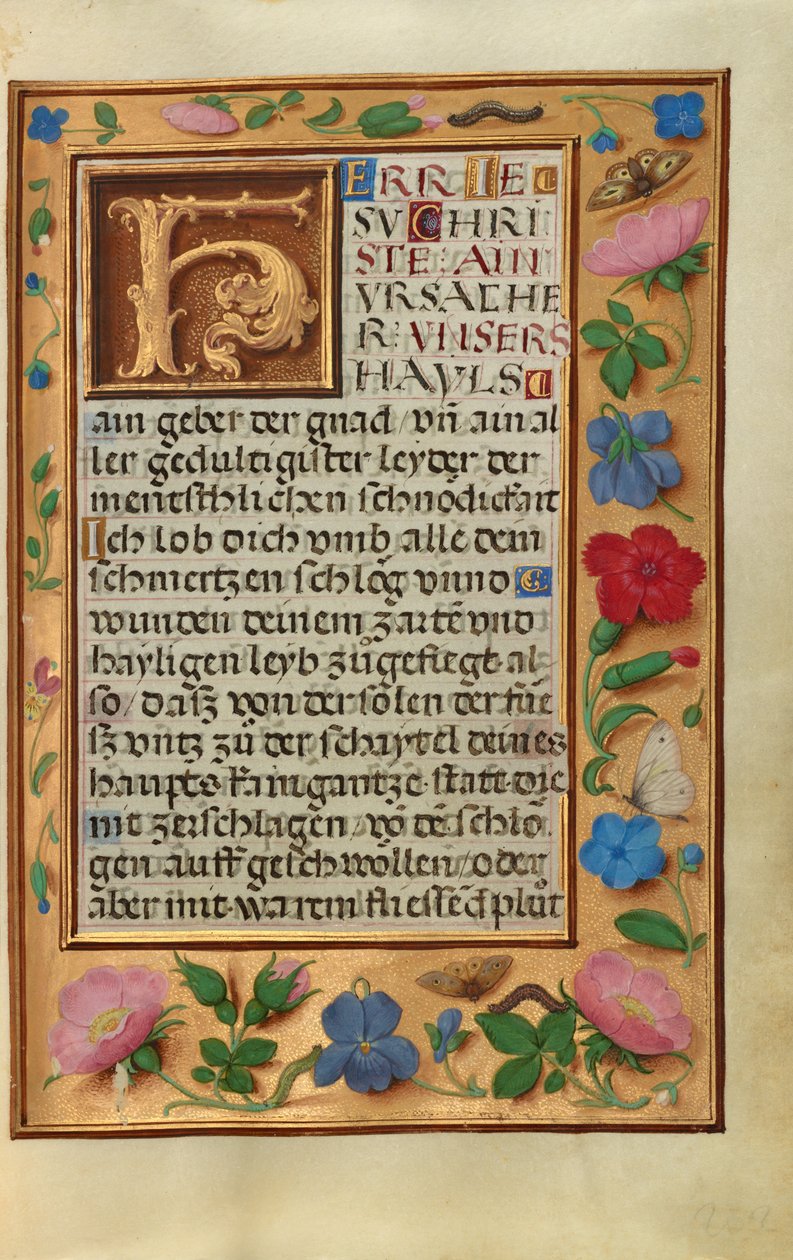 HERR IE
SV CHRI
STE: AIN
VRSACHE
R: VNSERS
HAYLS
ain geber der gnad / vn̄ ain al
ler gedultigister leyder der
mentschlichen schnödickait
Ich lob dich vmb alle dein
schmertzen schlög vnnd
wunden deinem zartē vnd
hayligen leyb zůgefiegt al
so / dasz von der solen der fue
sz vntz zů der schaytel deines
haupts kain gantze statt die
nit zerschlagen / vō dē schlö
gen auff geschwöllen / oder
aber mit warem fliessēd plůt
202